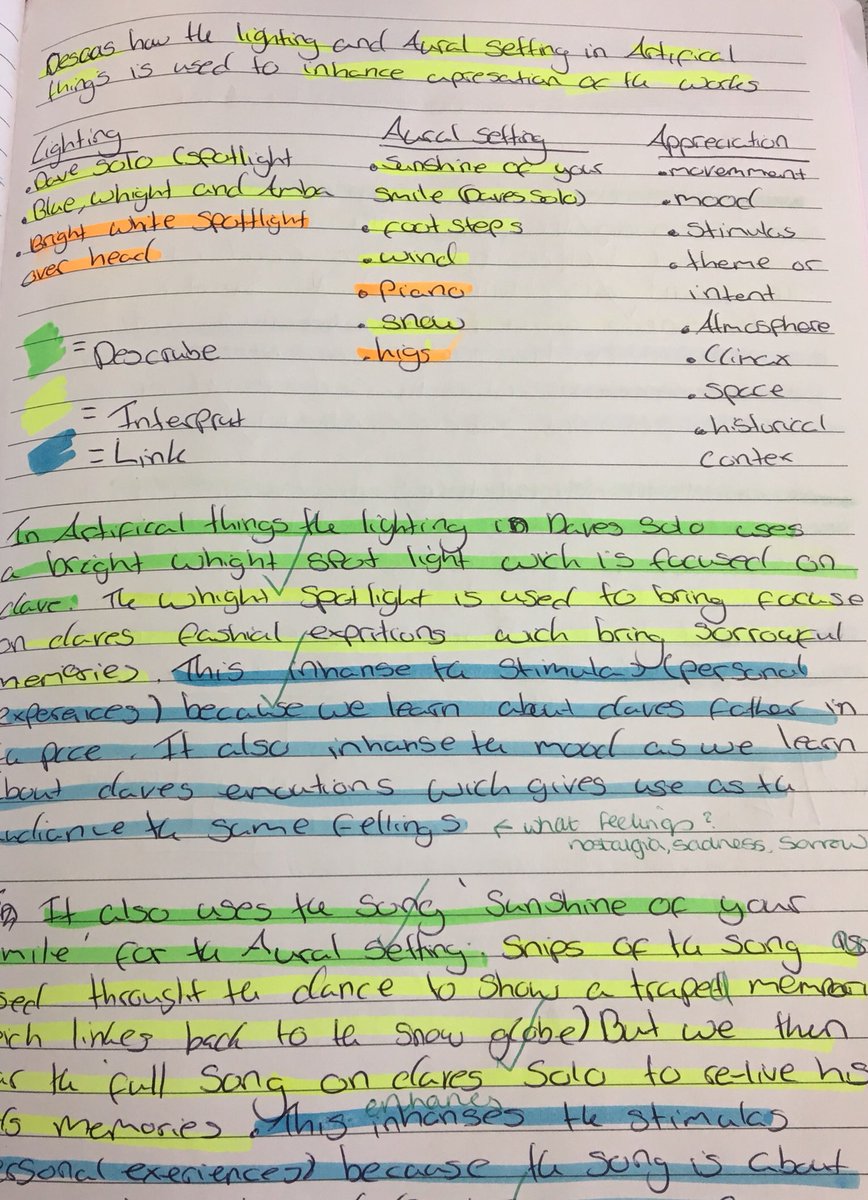 Descas how the lighting and Aural setting in Artifical
things is used to inhance apresation of the works
Lighting
.Dave solo (spotlight
.Blue, whight and Amba
.Bright white spotlight
over head
Aural setting
.Sunshine of your
smile (Daves solo)
.foot steps
.wind
.Piano
.snow
.higs
Appreciation
.movemment
.mood
.Stimulas
.theme or
intent
.Atmcsphere
.Climax
.space
.historical
Contex
= Descrube
= Interprut
= Link
In Artifical things the lighting in Daves solo uses
a bright whight spot light wich is focused on
dave. The whight spotlight is used to bring focuse
on daves fashial expritions wich bring sorrowful
memories. This inhanse the stimulas (personal
experences) because we learn about daves father in
pece. It also inhanse the mood as we learn
bout daves emcutions wich gives use as the
udiance the same fellings ← what feelings?
nostalgia, sadness, sorrow
It also uses the song 'Sunshine of your
mile' for the Aural setting. Snips of the song as
sed throught the dance to show a traped memron
ich linkes back to the snow globe) But we then
ar the full song on daves solo to re-live his
s memories. This inhanses the stimulas
enhances
ersonal exeriences) because the song is about